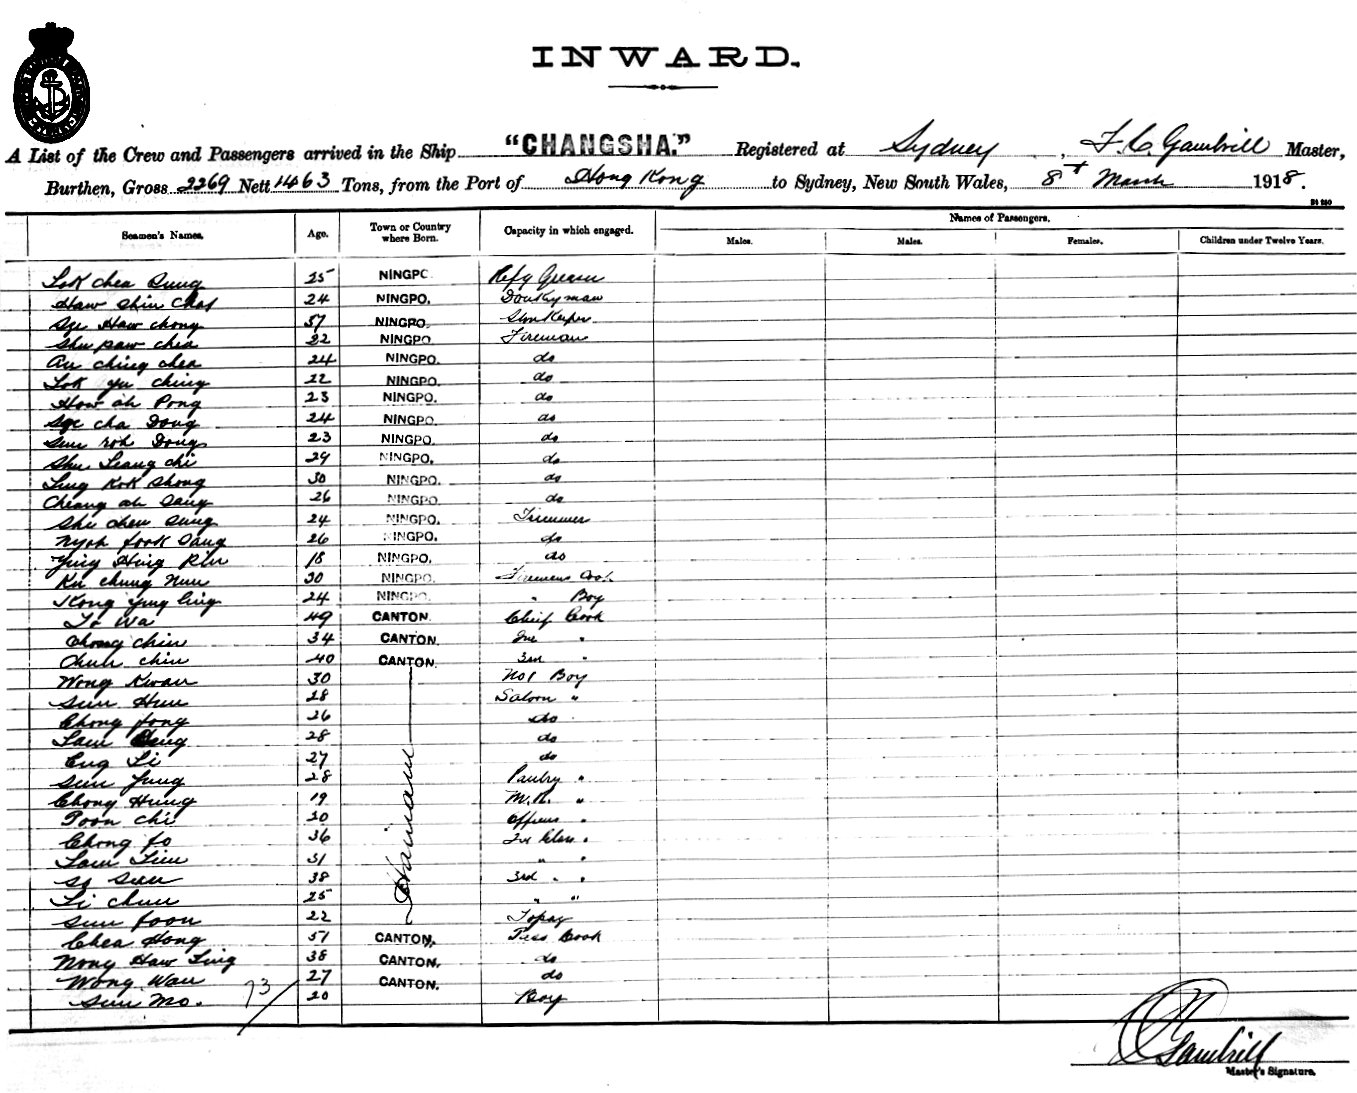 INWARD.
A List of the Crew and Passengers arrived in the Ship "CHANGSHA." Registered at Sydney, F. C. Gambrill Master,
Burthen, Gross 2269 Nett 1463 Tons, from the Port of Hong Kong to Sydney, New South Wales, 8th March 1918.
Seamen's Names. Age. Town or Country where Born. Capacity in which engaged. Names of Passengers.
Males. Males. Females. Children under Twelve Years.
Lok Chea Sung 25 NINGPO Refg Greaser
Haw Shin Chas 24 NINGPO. Donkyman
Sze Haw Chong 57 NINGPO. Storekeeper
Shu paw chea 22 NINGPO Fireman
Au Ching Chea 24 NINGPO. do
Lok Yu Ching 22 NINGPO. do
How ah Pong 23 NINGPO. do
Sze cha Dong 24 NINGPO. do
Sun Dong 23 NINGPO. do
Shu Leang Chi 29 NINGPO. do
Ling Kok Shong 30 NINGPO. do
Cheang ah Sang 26 NINGPO. do
She chew Sung 24 NINGPO. Trimmer
Nyoh fook Sang 26 NINGPO. do
Ying Hing 18 NINGPO. do
Ku chung 30 NINGPO. Firemens Cook
Kong Yung Ling 24 NINGPO. " Boy
To Wa 49 CANTON. Chief Cook
Chong Chin 34 CANTON. 2nd "
Chun Chin 40 CANTON. 3rd "
Wong Kwan 30 No 1 Boy
Sun Hun 28 Saloon "
Chong fong 26 do
Lam 28 do
Eng Li 27 do
Sun Yung 28 Pantry "
Chong Hung 19 M.R. "
Poon Chi 20 Officers "
Chong fo 36 2nd Class "
Lam Lim 31 " "
So Sun 38 3rd " "
Li Chun 25 " "
Sun foon 22 Topaz
Hainam
Chea Hong 51 CANTON. Pass Cook
Wong Haw Ling 38 CANTON. do
Wong Wan 27 CANTON. do
Sun Mo. 20 Boy
73
Gambrill
Master's Signature.